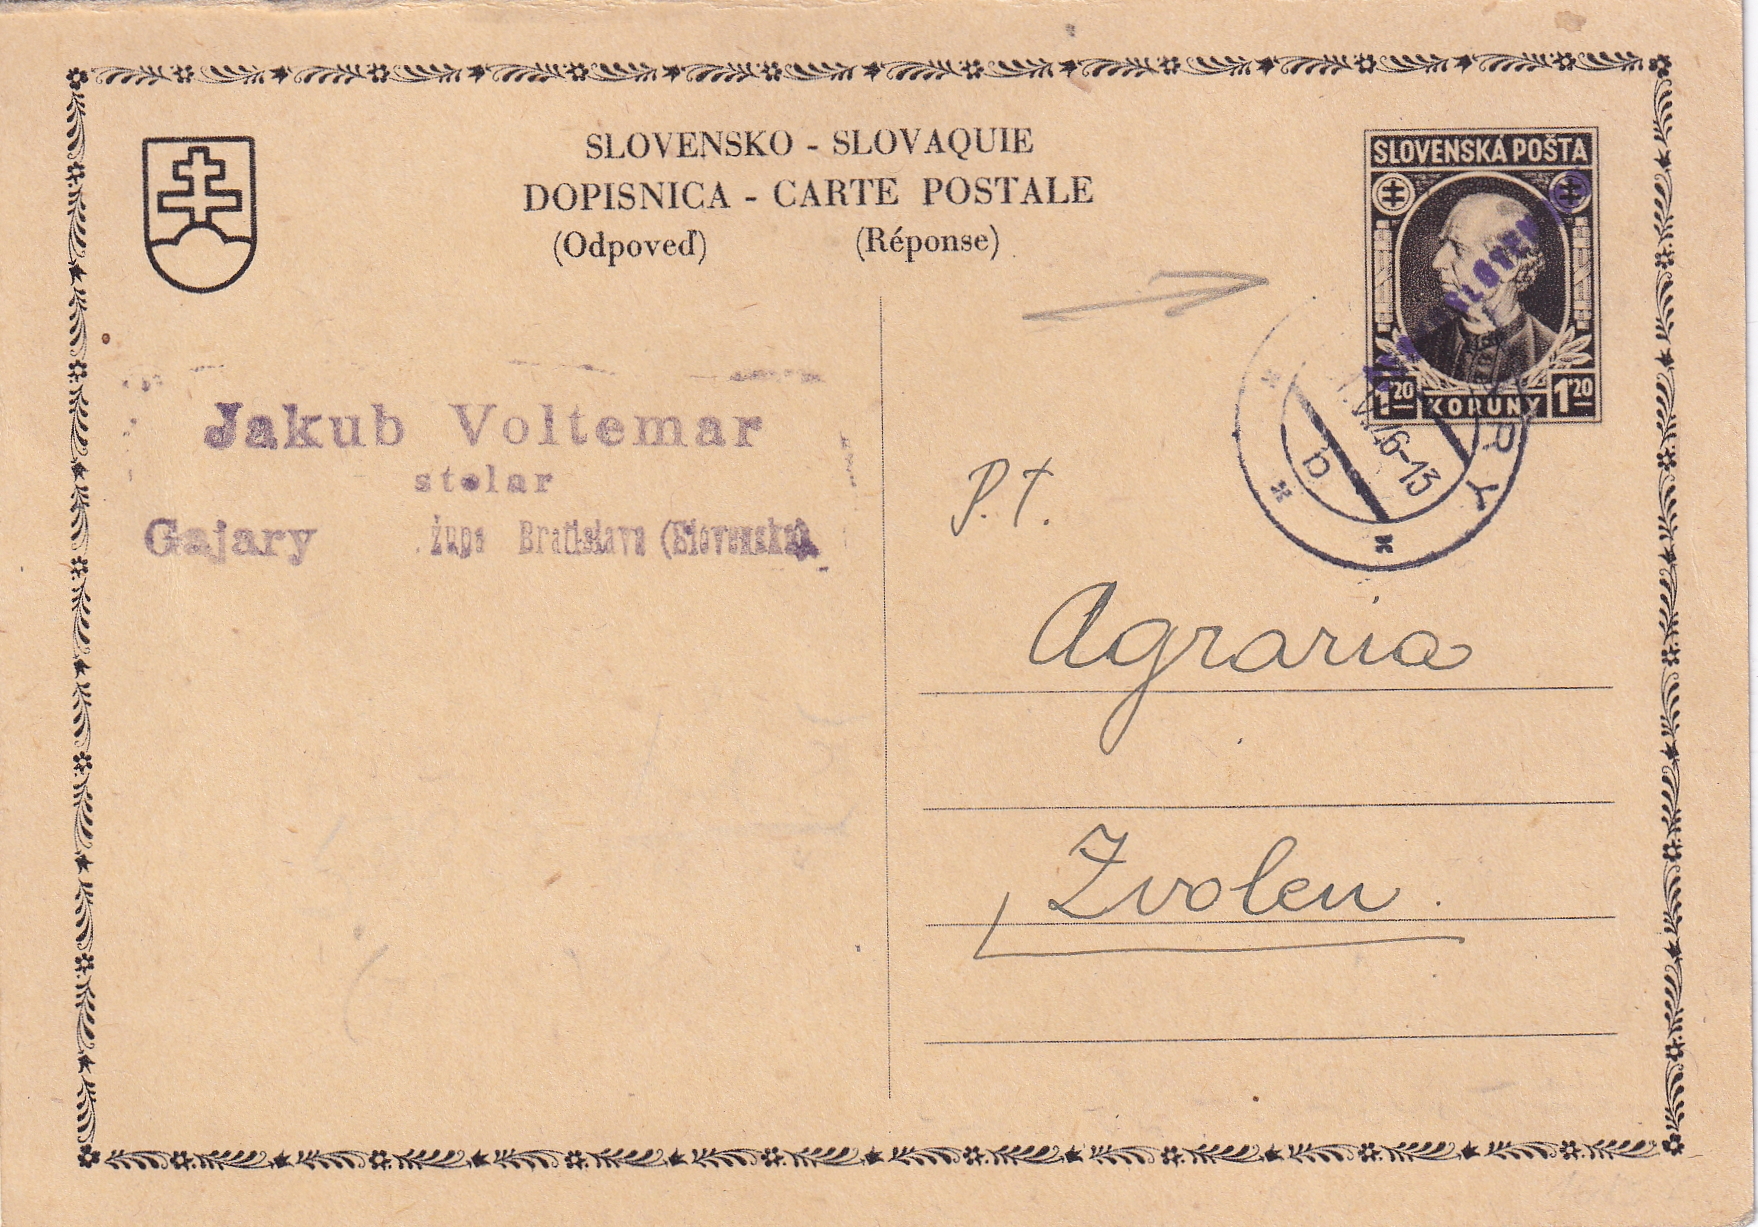 SLOVENSKO - SLOVAQUIE
DOPISNICA - CARTE POSTALE
(Odpoveď) (Réponse)
SLOVENSKÁ POŠTA
1'20 KORUNY 1'20
RY
46-13
b
Jakub Voltemar
stolar
Gajary župa Bratislava (Slovensko)
P.T.
Agraria
Zvolen.